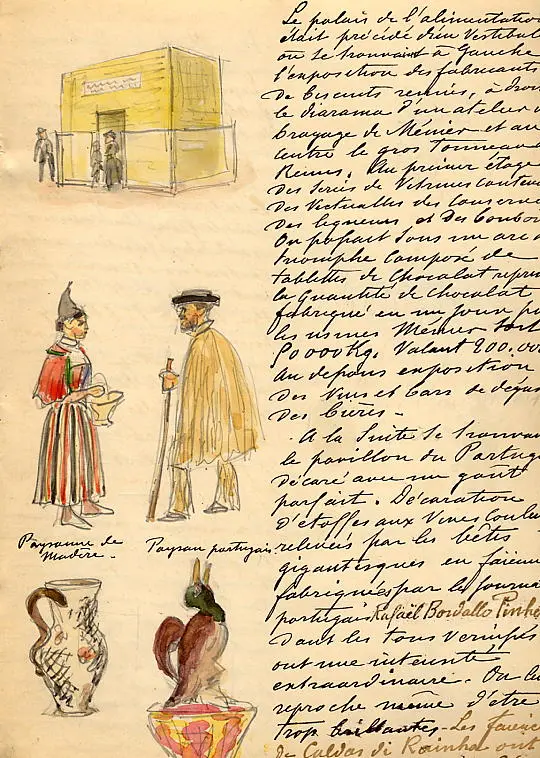 Le palais de l'alimentation
était précédé d'un Vestibul
où se trouvait à Gauche
l'exposition des fabricants
de biscuits remiés, à droi
le diorama d'un atelier
broyage de Ménier et au
centre le gros tonneau
Reims. Au premier étage
des séries de Vitrines conten
des Victuailles des Conserv
des liqueurs et des bonbon
On passait sous un arc
triomphe Composé de
tablettes de Chocolat repré
la Quantité de chocolat
fabriqué en un jour p
les usines Ménier soit
50000Kg. Valant 200.00
Au dessous exposition
Des Vins et bars de dégus
Des bières -
A la Suite se trouva
le pavillon du Portuga
Décoré avec un goût
parfait. Décoration
d'étoffes aux Vives Coule
relevées par les bêtes
gigantesques en faïen
fabriquées par le journa
portugais Rafaël Bordallo Pinh
Dont les tons Vernissés
ont une intensité
extraordinaire. On l
reproche même d'être
trop brillantes - Les faienc
de Caldas di Rainha ont
Paysanne de
Madère -
Paysan portugais.